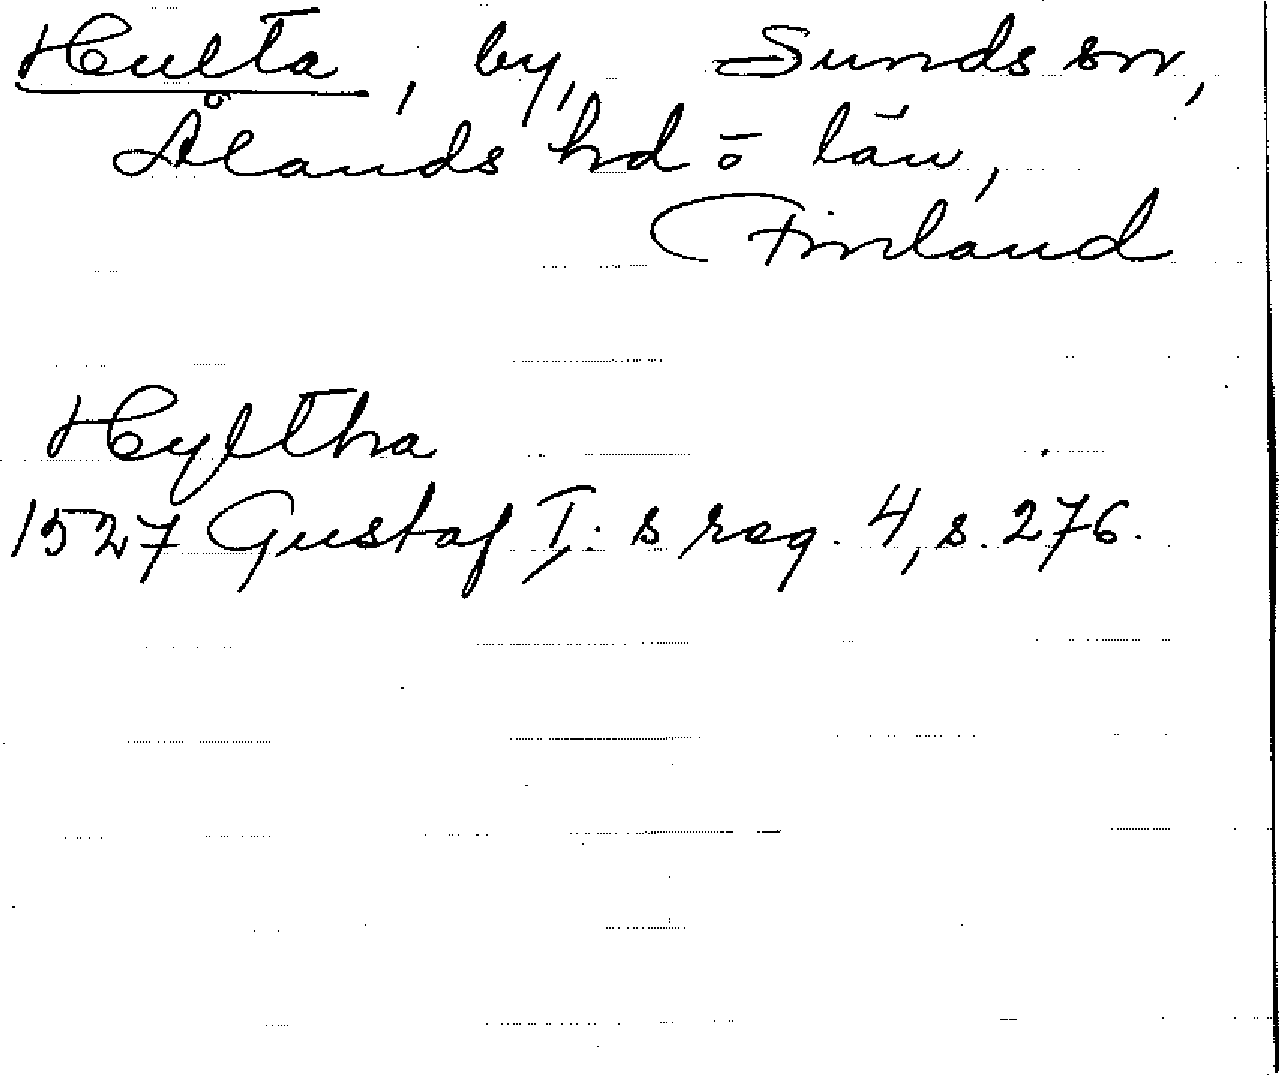 Hulta, by, Sunds sn,
Ålands hd o län,
Finland
Hyltha
1527 Gustaf I:s reg. 4, s. 276.